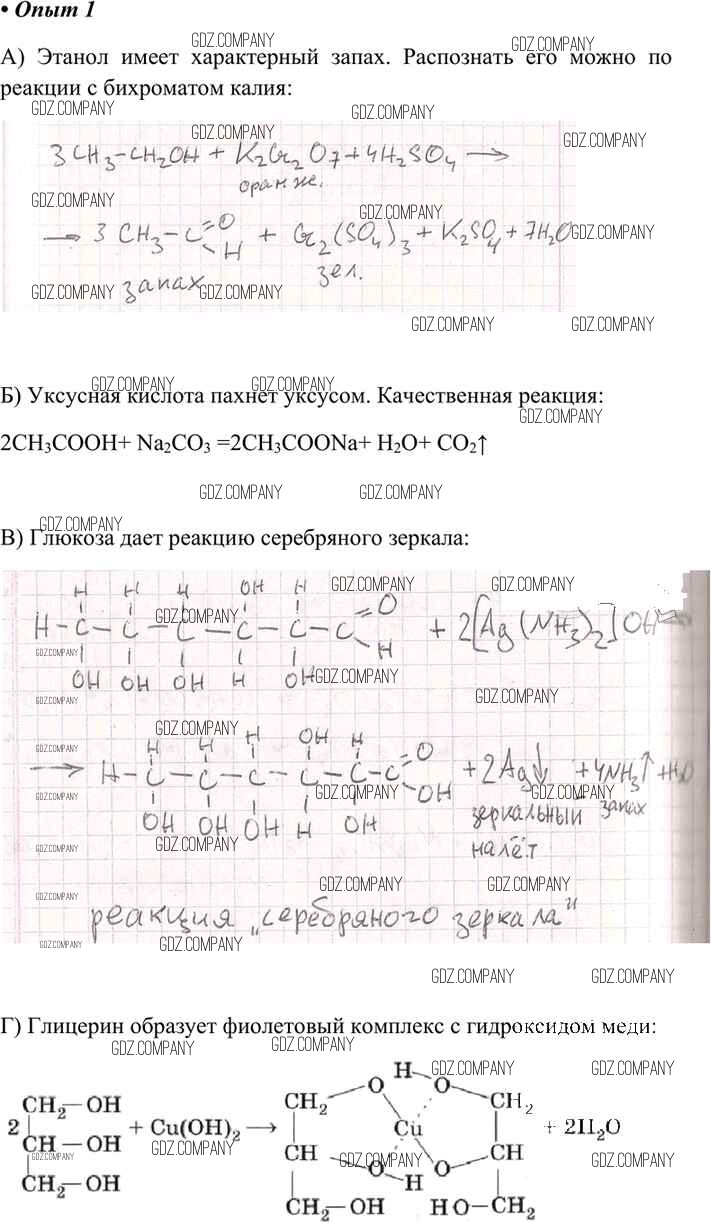 • Опыт 1
GDZ.COMPANY GDZ.COMPANY
А) Этанол имеет характерный запах. Распознать его можно по
реакции с бихроматом калия:
GDZ.COMPANY GDZ.COMPANY
GDZ.COMPANY GDZ.COMPANY
3CH₃-CH₂OH + K₂Cr₂O₇ + 4H₂SO₄ →
оранж.
GDZ.COMPANY GDZ.COMPANY
→ 3 CH₃-C=O H + Cr₂(SO₄)₃ + K₂SO₄ + 7H₂O
GDZ.COMPANY
запах зел.
GDZ.COMPANY GDZ.COMPANY
GDZ.COMPANY GDZ.COMPANY
GDZ.COMPANY GDZ.COMPANY
Б) Уксусная кислота пахнет уксусом. Качественная реакция:
GDZ.COMPANY
2CH₃COOH+ Na₂CO₃ =2CH₃COONa+ H₂O+ CO₂↑
GDZ.COMPANY GDZ.COMPANY
GDZ.COMPANY
В) Глюкоза дает реакцию серебряного зеркала:
GDZ.COMPANY GDZ.COMPANY
H H H OH H
GDZ.COMPANY
H-C-C-C-C-C-C=O H + 2[Ag(NH₃)₂]OH →
GDZ.COMPANY
OH OH OH H OH
GDZ.COMPANY
GDZ.COMPANY GDZ.COMPANY
GDZ.COMPANY
GDZ.COMPANY
H H H OH H
→ H-C-C-C-C-C-C=O OH + 2Ag↓ + 4NH₃↑ + H₂O
GDZ.COMPANY
GDZ.COMPANY GDZ.COMPANY GDZ.COMPANY
OH OH OH H OH
зеркальный запах
налёт
GDZ.COMPANY GDZ.COMPANY
GDZ.COMPANY GDZ.COMPANY
GDZ.COMPANY
реакция „серебряного зеркала"
GDZ.COMPANY GDZ.COMPANY
GDZ.COMPANY GDZ.COMPANY
Г) Глицерин образует фиолетовый комплекс с гидроксидом меди:
GDZ.COMPANY GDZ.COMPANY
GDZ.COMPANY GDZ.COMPANY
H
CH₂—OH CH₂ O O CH₂
2 CH—OH + Cu(OH)₂ → Cu + 2H₂O
CH O O CH
H
GDZ.COMPANY GDZ.COMPANY GDZ.COMPANY GDZ.COMPANY
CH₂—OH CH₂—OH HO—CH₂